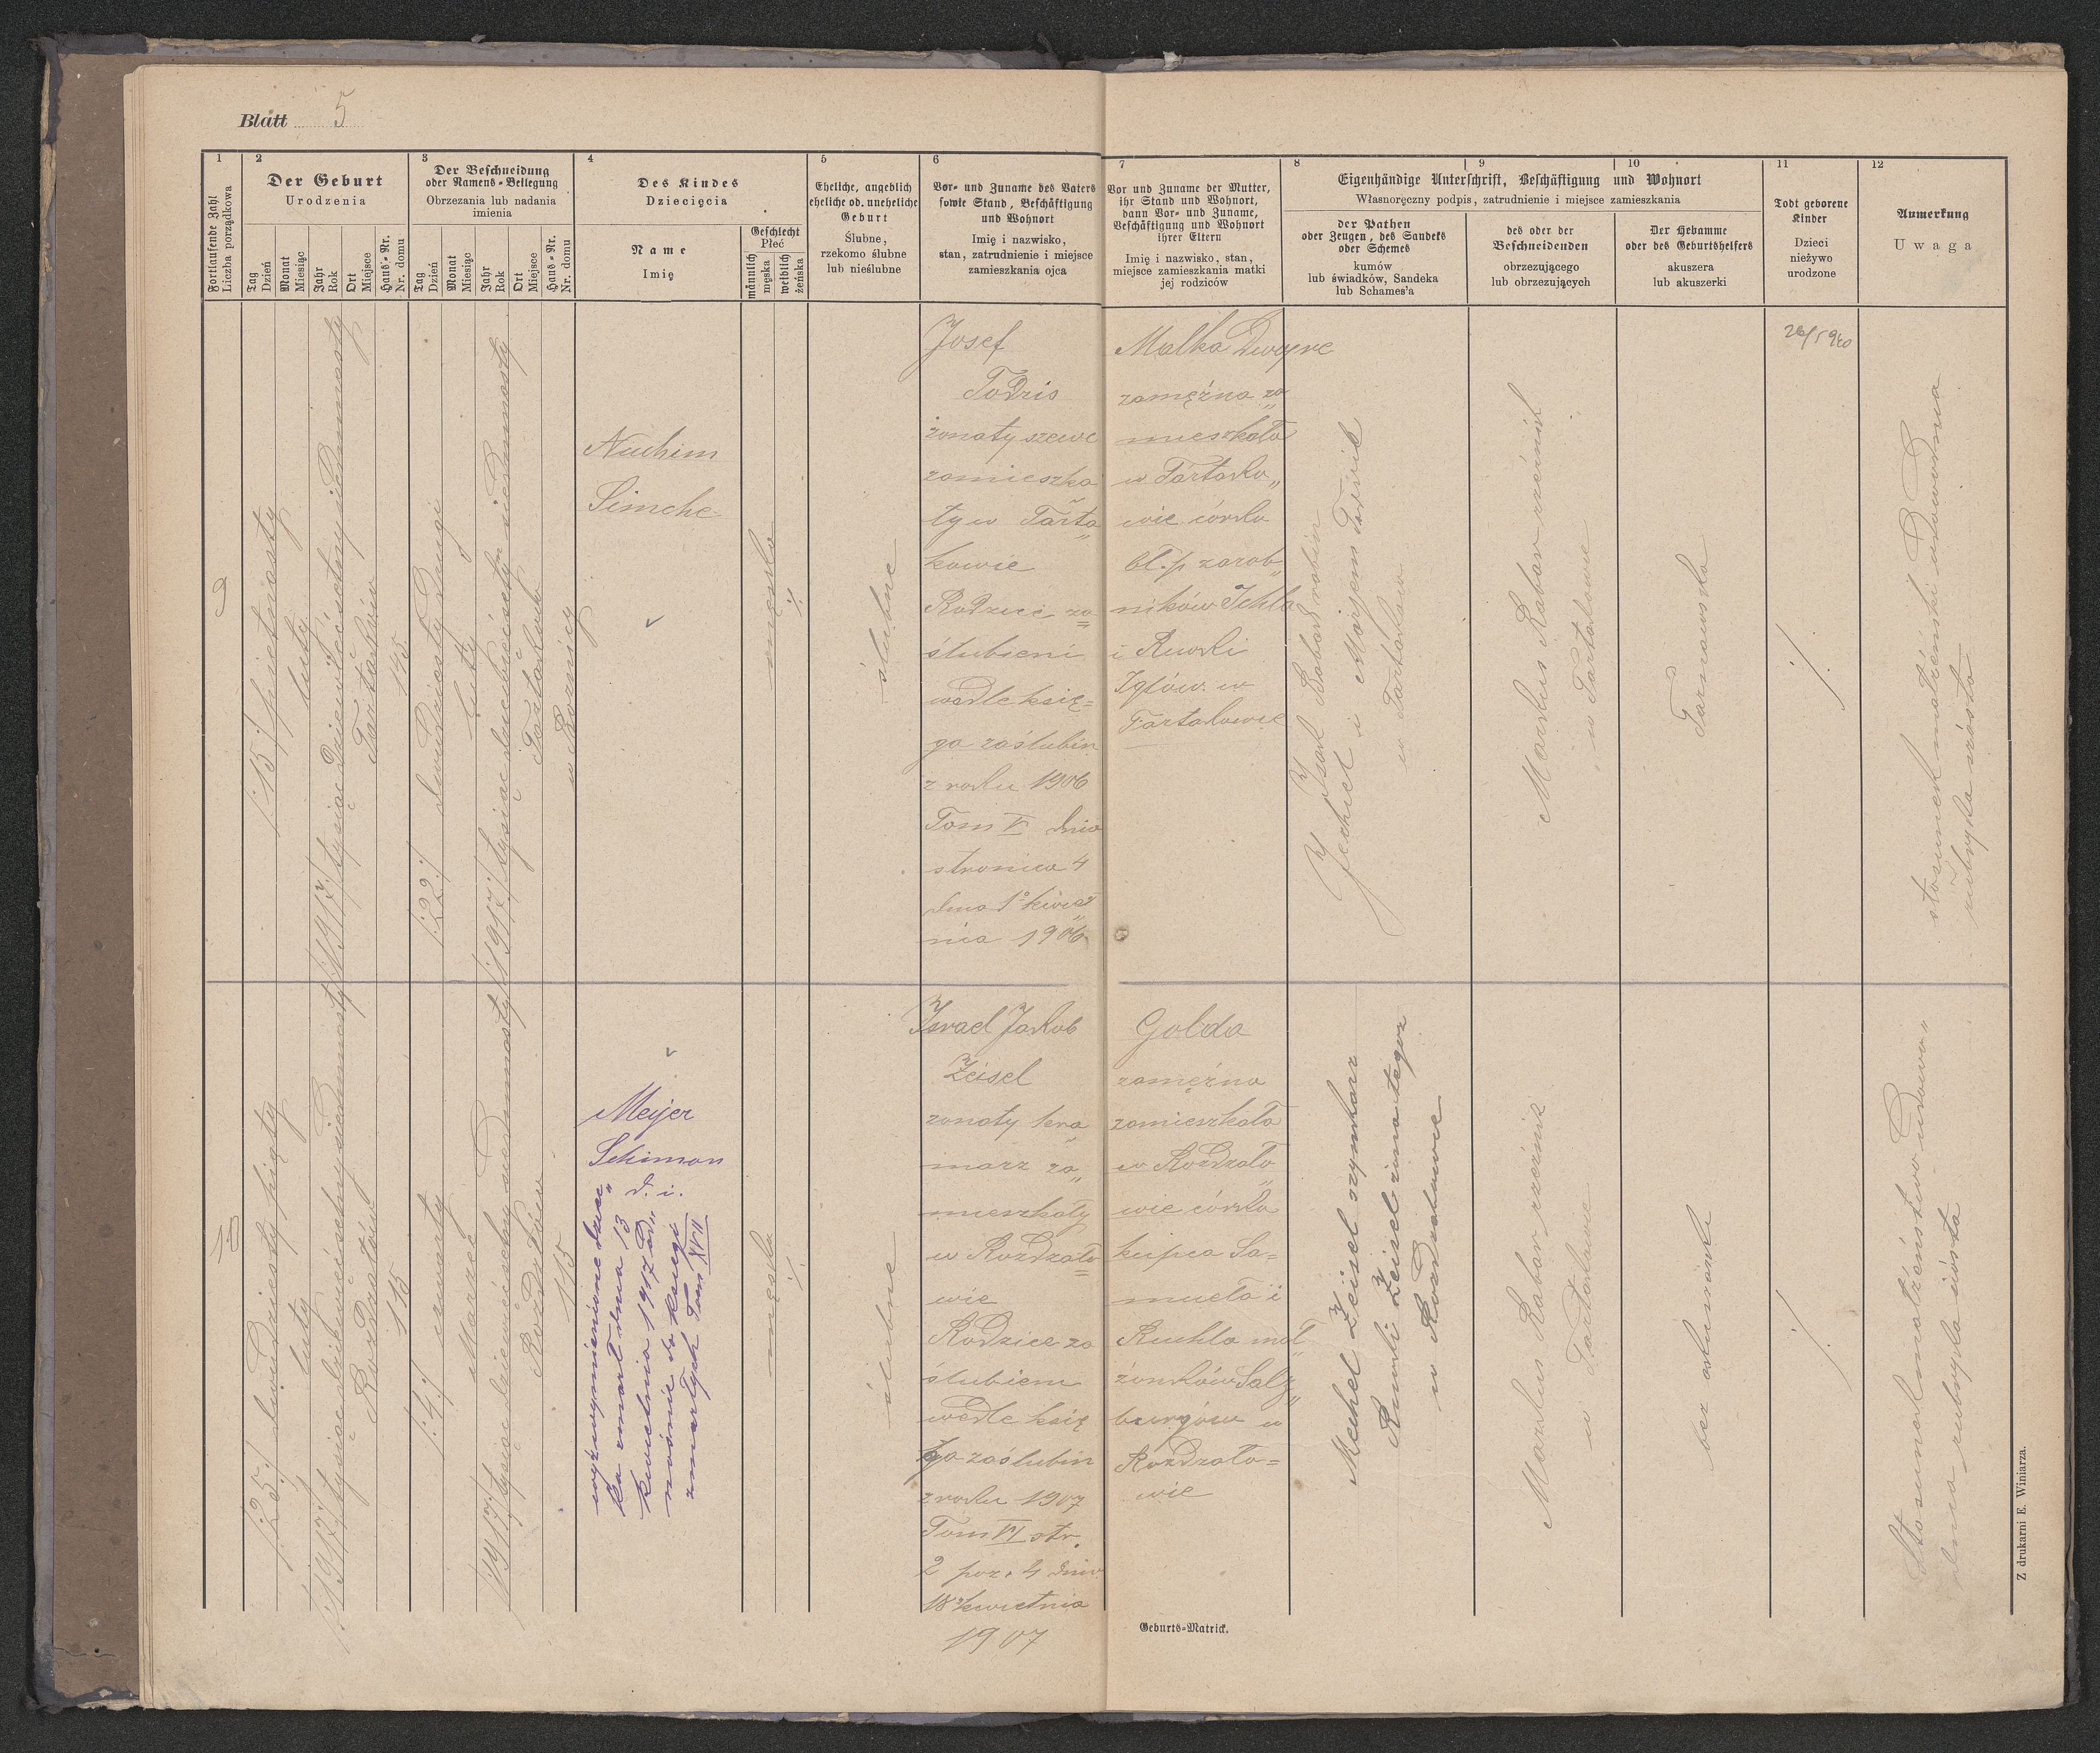 Blatt 5
1
Fortlaufende Zahl
Liczba porządkowa
2
Der Geburt
Urodzenia
Tag
Dzień
Monat
Miesiąc
Jahr
Rok
Ort
Miejsce
Haus-Nr.
Nr. domu
3
Der Beschneidung
oder Namens-Beilegung
Obrzezania lub nadania
imienia
Tag
Dzień
Monat
Miesiąc
Jahr
Rok
Ort
Miejsce
Haus-Nr.
Nr. domu
4
Des Kindes
Dziecięcia
Name
Imię
Geschlecht
Płeć
männlich
męska
weiblich
żeńska
5
Eheliche, angeblich
eheliche od. uneheliche
Geburt
Ślubne,
rzekomo ślubne
lub nieślubne
6
Vor- und Zuname des Vaters
sowie Stand, Beschäftigung
und Wohnort
Imię i nazwisko,
stan, zatrudnienie i miejsce
zamieszkania ojca
7
Vor und Zuname der Mutter,
ihr Stand und Wohnort,
dann Vor- und Zuname,
Beschäftigung und Wohnort
ihrer Eltern
Imię i nazwisko, stan,
miejsce zamieszkania matki
jej rodziców
Eigenhändige Unterschrift, Beschäftigung und Wohnort
Własnoręczny podpis, zatrudnienie i miejsce zamieszkania
8
der Pathen
oder Zeugen, des Sandeks
oder Schemes
kumów
lub świadków, Sandeka
lub Schames'a
9
des oder der
Beschneidenden
obrzezującego
lub obrzezujących
10
Der Hebamme
oder des Geburtshelfers
akuszera
lub akuszerki
11
Todt geborene
Kinder
Dzieci
nieżywo
urodzone
12
Anmerkung
Uwaga
9
/:15:/ piętnasty
luty
/1917/ tysiąc dziewięćsetny siedmnasty
Tartaków
145
/:22:/ dwudziesty drugi
luty
/1917:/ tysiąc dziewięćsetny siedmnasty
Tartaków
w Bożnicy
Nuchim
Simche
męska
./.
ślubne
Josef
Todris
żonaty szewc
zamieszka
ły w Tarta„
kowie
Rodzice za=
ślubieni
wedle księ=
ga zaślubin
z roku 1906
Tom V dnia
stronica 4
dnia 1 kwiet„
nia 1906
Malka Dwojre
zamężna za„
mieszkała
w Tartako„
wie córka
bł. p. zarob„
ników Ichla
i Rywki
Iglów w
Tartakowie
Isak rabin
Jechiel i
w Tartakowie
Markus Rabar rzeźnik
w Tartakowie
Tarnawska
./.
26/5 940
stosunek małżeński udowodnia
rubryka szósta
10
/:25:/ dwudziesty piąty
luty
/1917/ tysiąc dziewięćsetny siedmnasty
Rożdżałów
115
/:4:/ czwarty
Marzec
/1917:/ tysiąc dziewięćsetny siedmnasty
Rożdżałów
115
Meijer
Schimon
d. i.
wyż wymienione dziec„
ko zmarł dnia 13
kwietnia 1917
do księgi
zmarłych Tom XVII
męska
./.
ślubne
Israel Jakob
Zeisel
żonaty kra„
marz za„
mieszkały
w Rożdżało=
wie
Rodzice za
ślubieni
wedle księ
ga zaślubin
z roku 1907
Tom VI str.
2 poz. 4 dnia
18 kwietnia
1907
Golda
zamężna
zamieszkała
w Rożdżało„
wie córka
kupca Sa=
muela i
Ruchla mał„
żonków Salz„
burgów w
Rożdżało=
wie
Mechel Zeisel szynkarz
Zeisel żona tegoż
w Rożdżałowie
Markus Rabar rzeźnik
w Tartakowie
bez akuszerki
./.
Stosunek małżeństwo udowa„
dnia rubryka szósta
Geburts-Matrick.
Z drukarni E. Winiarza.